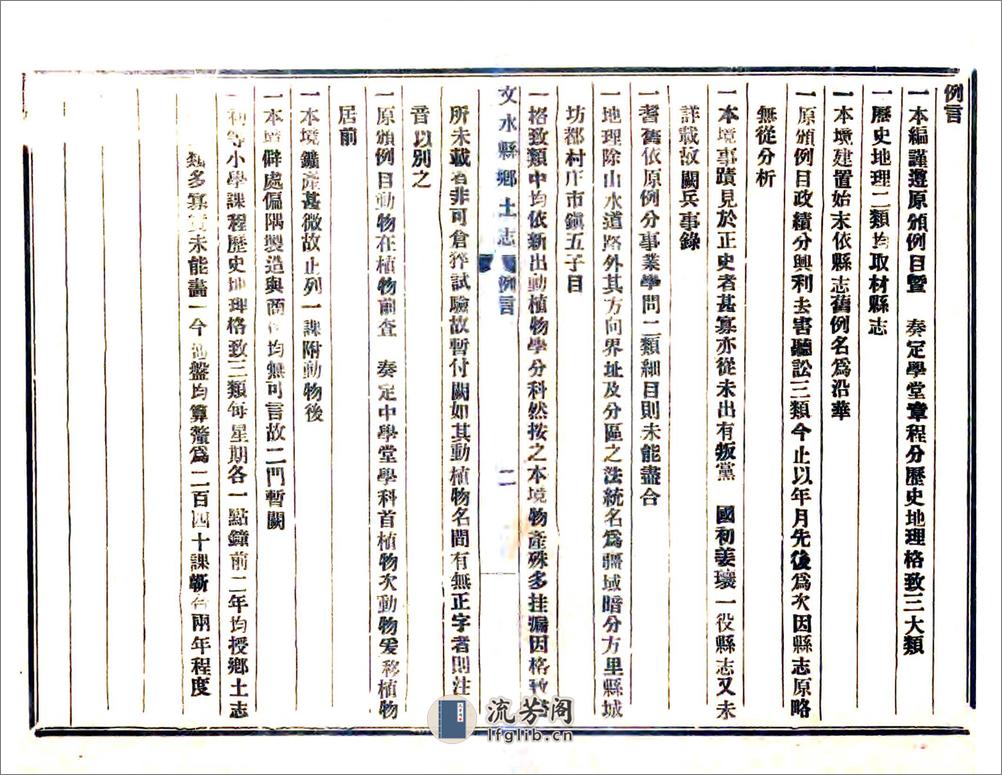 例言
一本編謹遵原頒例目暨　奏定學堂章程分歷史地理格致三大類
一歷史地理二類均取材縣志
一本境建置始末依縣志舊例名爲沿革
一原頒例目政績分興利去害聽訟三類今止以年月先後爲次因縣志原略
無從分析
一本境事蹟見於正史者甚寡亦從未出有叛黨　國初姜瓖一役縣志又未
詳載故闕兵事錄
一耆舊依原例分事業學問二類細目則未能盡合
一地理除山水道路外其方向界址及分區之法統名爲疆域暗分方里縣城
坊都村庄市鎭五子目
一格致類中均依新出動植物學分科然按之本境物產殊多挂漏因格致
文水縣鄉土志　例言　二
所未載者非可倉猝試驗故暫付闕如其動植物名間有無正字者則注
音以別之
一原頒例目動物在植物前查　奏定中學堂學科首植物次動物爰移植物
居前
一本境鑛產甚微故止列一課附動物後
一本境僻處偏隅製造與商均無可言故二門暫闕
一初等小學課程歷史地理格致三類每星期各一點鐘前二年均授鄉土志
類多寡未能畫一今盤均算釐爲二百四十課嶄兩年程度
流芳阁
lfglib.cn